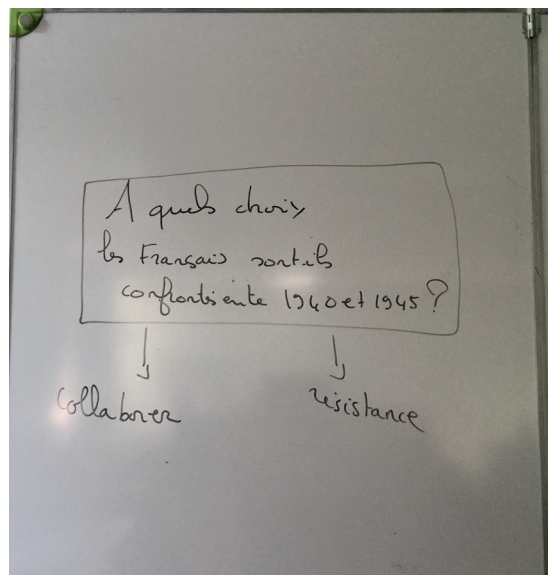 A quels choix
les Français sont-ils
confrontés ente 1940 et 1945 ?
collaborer
résistance